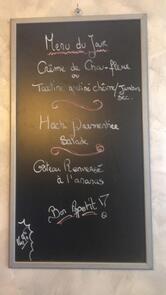 Menu du Jour
Crème de Chou-fleur
ou
Tartine gratiné chèvre/Jambon
sec.
Hachi Parmentier
Salade
Gâteau Renversé
à l'ananas
Bon Appétit !